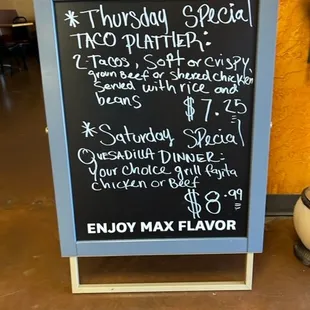 * Thursday Special
TACO PLATTIER:
2-Tacos, Soft or crispy
groun Beef or shered chicken
served with rice and
beans
$7.25
* Saturday Special
QUESADILLA DINNER:
Your choice grill fajita
chicken or Beef
$8.99
ENJOY MAX FLAVOR